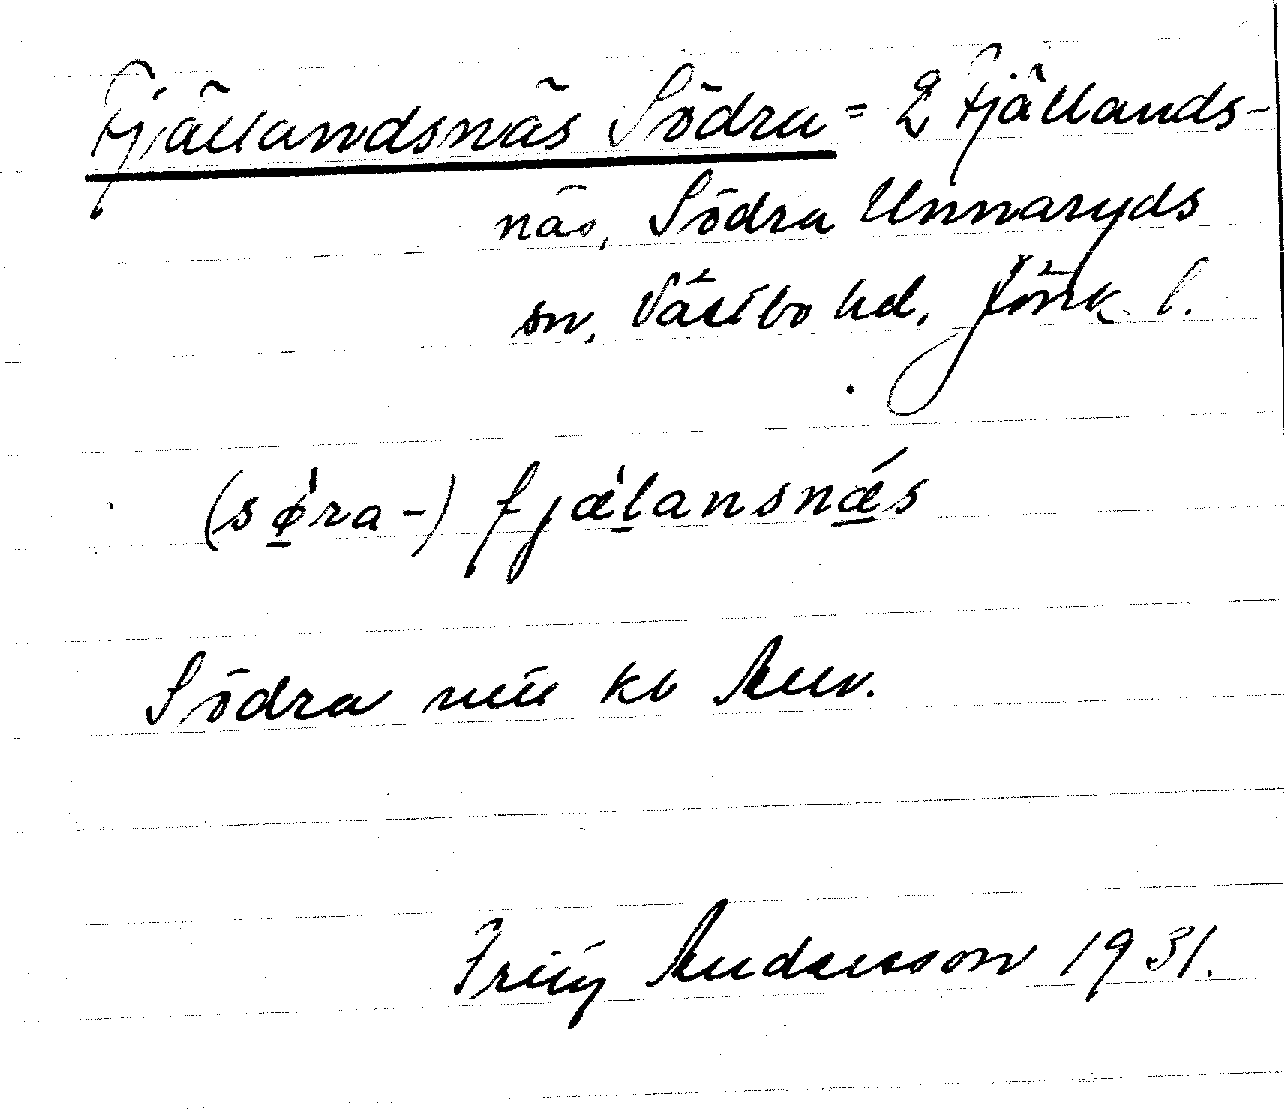 Fjällandsnäs Södra = 2 Fjällands-
näs, Södra Unnaryds
sn, Västbo hd, Jönk. l.
(sø̱̀ra-) fjæ̀ḻansnǽ̱s
Södra kb
Andersson 1931.